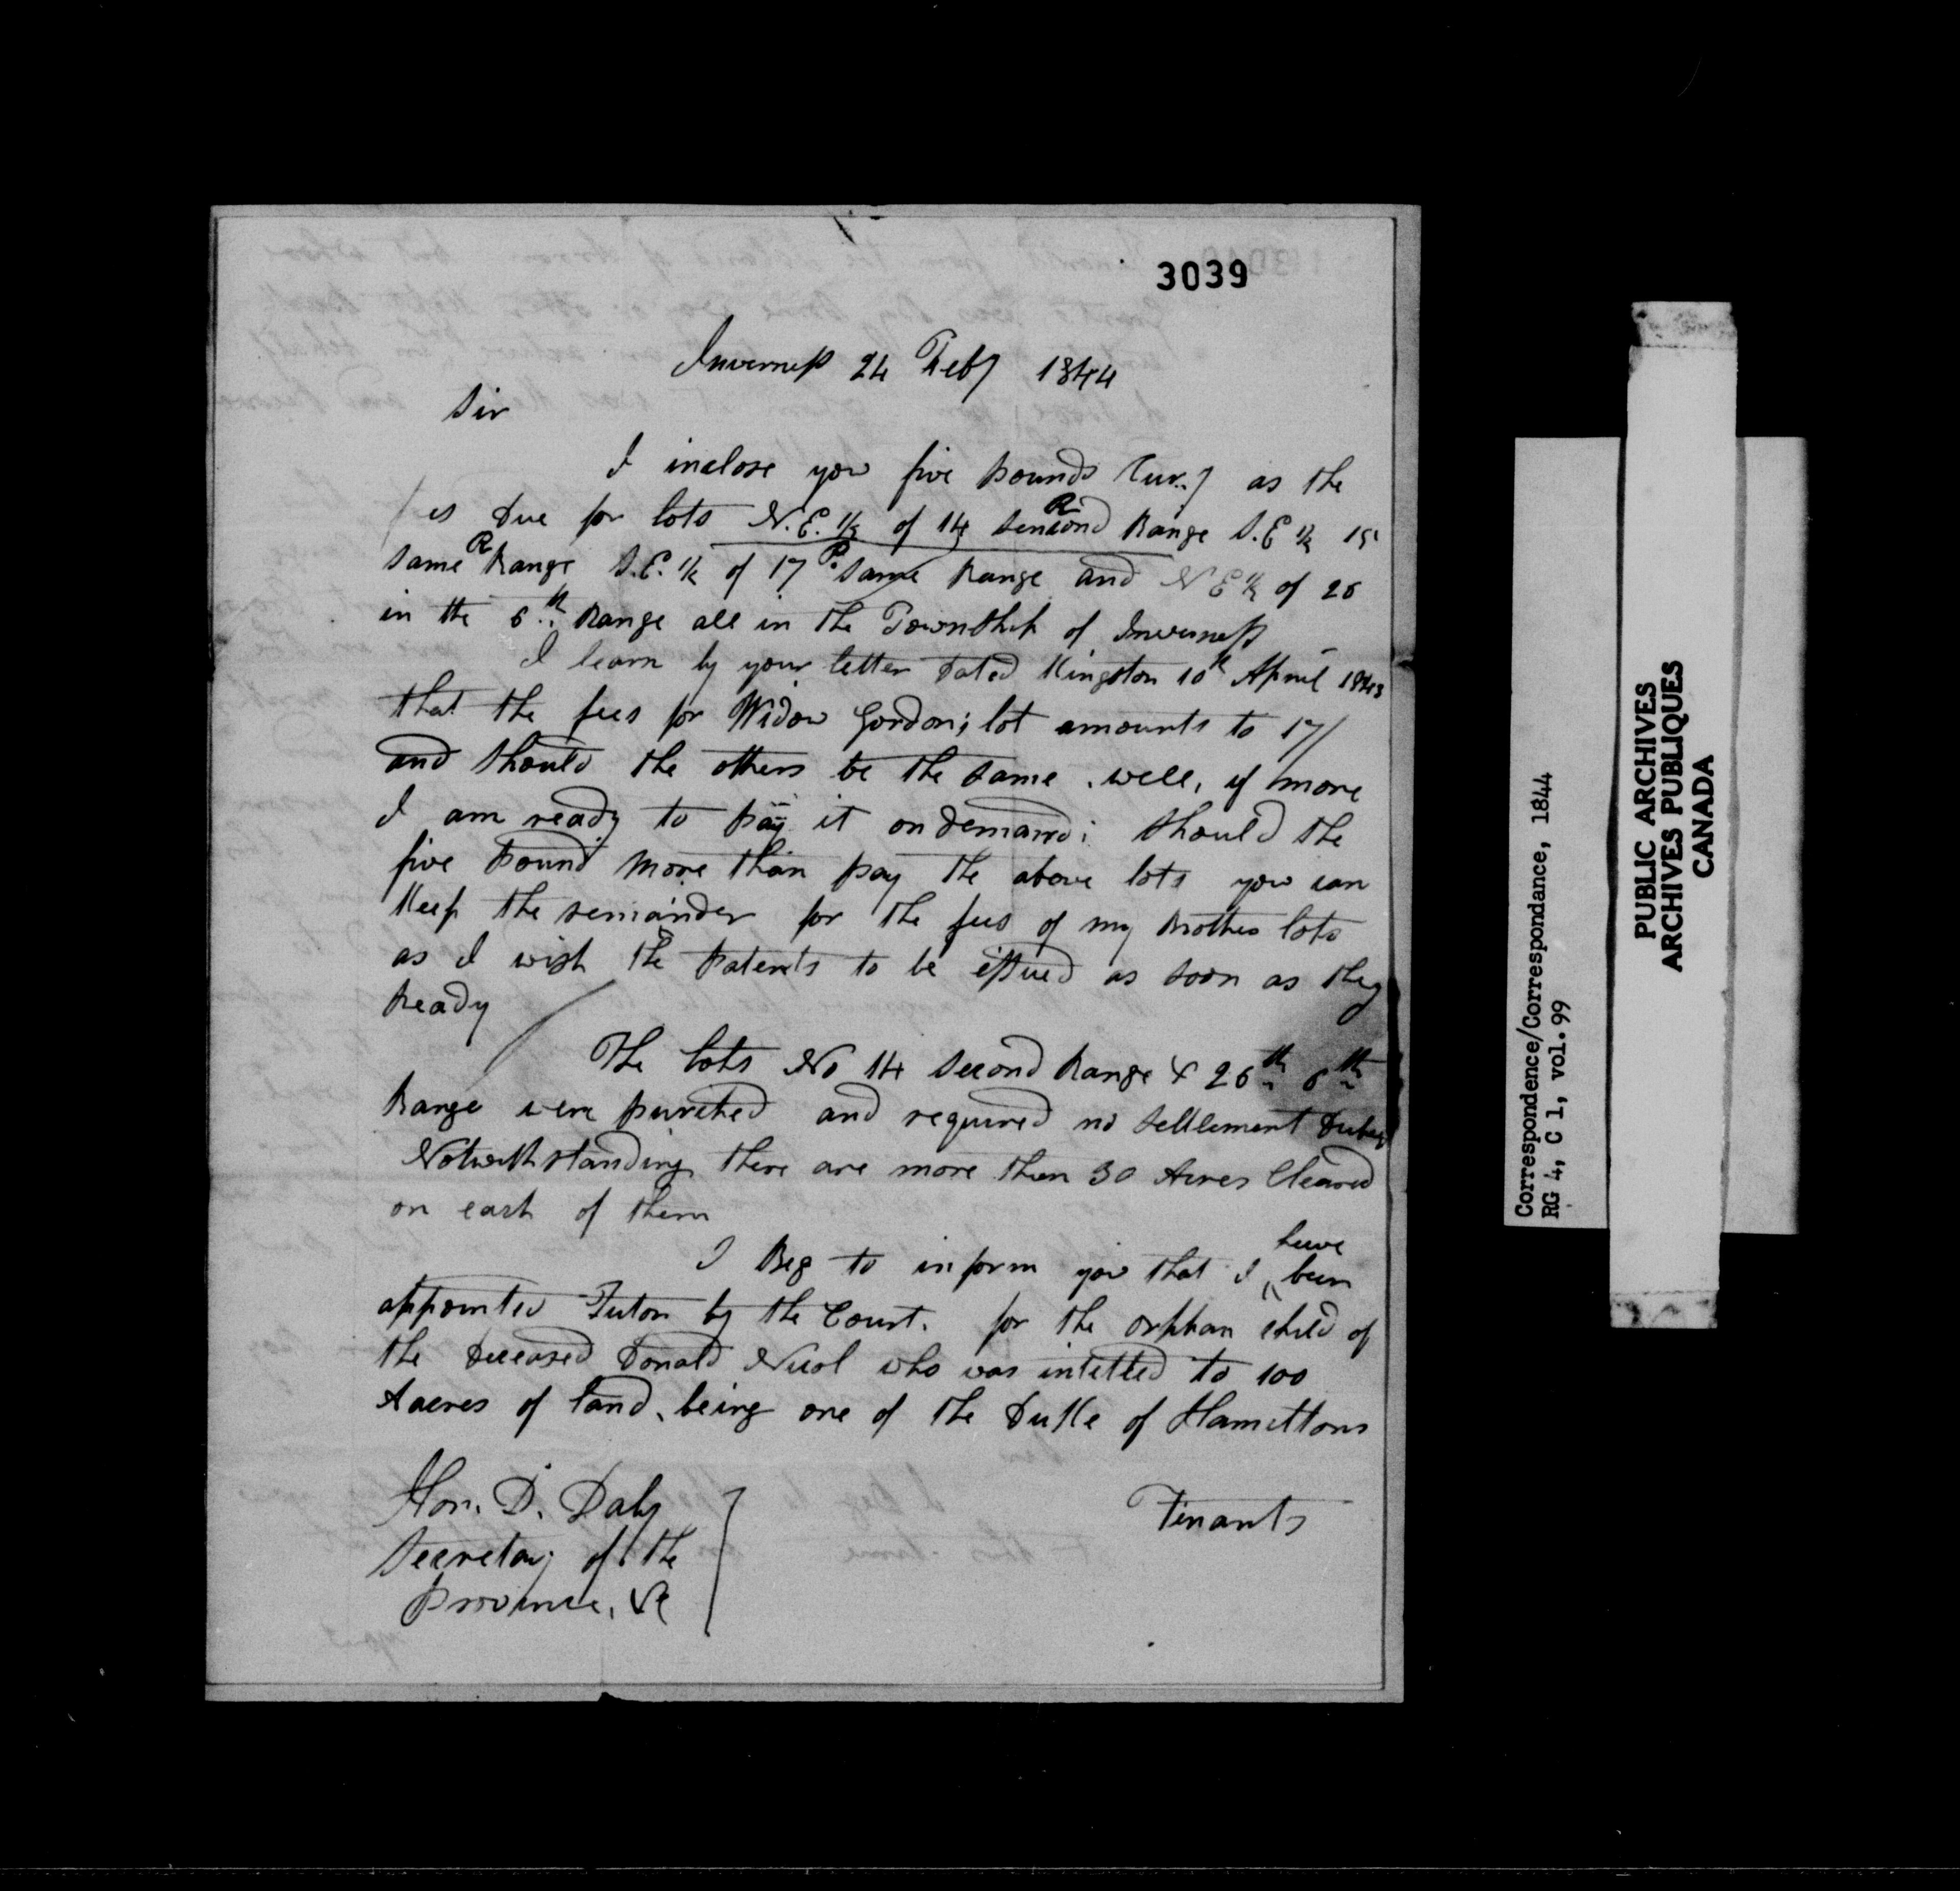 3039
Inverness 24 Feby 1844
Sir
I inclose you five pounds Cur.y as the
fes Due for lots N.E. 1/2 of 14 Sencond R Range S.E 1/2 15
Same R Range S.E. 1/2 of 17 R Same Range and N E 1/2 of 26
in the 6th Range all in the Township of Inverness
I learn by your letter Dated Kingston 10th April 1843
that the fees for Widow Gordons lot amounts to 17/
and Should the others be the Same, well, if more
I am ready to pay it on demand; Should the
five pound more than pay the above lots you can
Keep the remainder for the fees of my Brother lots
as I wish the Patents to be issued as soon as they
Ready
The lots No 14 Second Range & 26th 6th
Range were purched and required no Settlement Dutey
Notwithstanding there are more then 30 Acres Cleared
on each of them
I Beg to inform you that I have been
appointed Tutor by the Court. for the orphan child of
the Deceased Donald Nicol who was intitled to 100
Aacres of land, being one of the Duke of Hamiltons
Tinants
Hon. D. Daly
Secretary of the
Province, &c
Correspondence/Correspondance, 1844
RG 4, C 1, vol. 99
PUBLIC ARCHIVES
ARCHIVES PUBLIQUES
CANADA